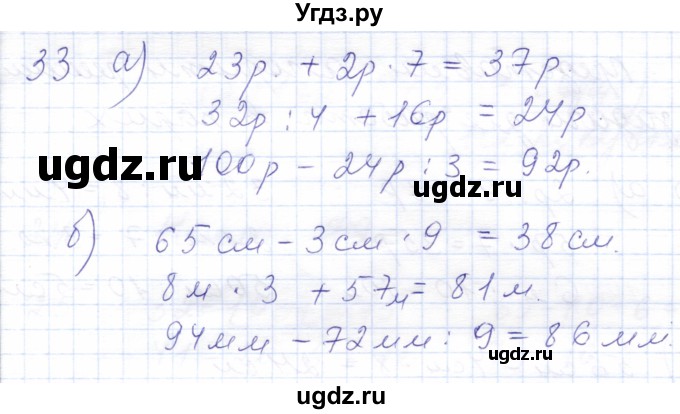 Угдз.ру
33 а) 23р. + 2р · 7 = 37р.
32р : 4 + 16р = 24р.
ugdz.ru
100р - 24р : 3 = 92р.
ugdz.ru
б) 65см - 3см · 9 = 38см.
8м · 3 + 57м = 81м.
94мм - 72мм : 9 = 86мм.
ugdz.ru
ugdz.ru